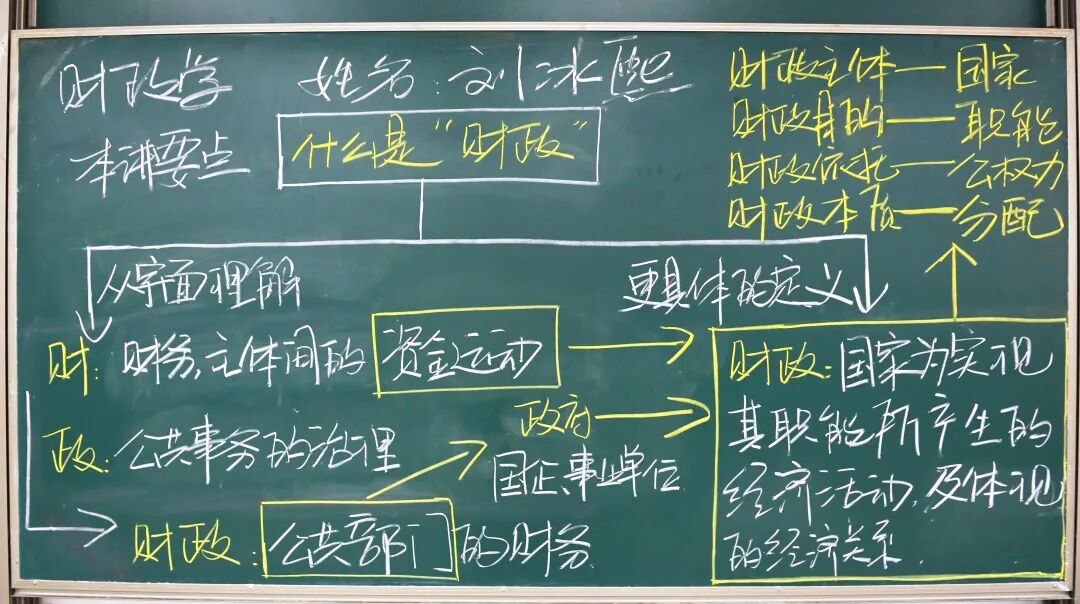 财政学 姓名:刘冰熙
本讲要点
什么是“财政”
财政主体——国家
财政目的——职能
财政依托——公权力
财政本质——分配
从字面理解
更具体的定义
财:财务,主体间的资金运动
政:公共事务的治理
财政:公共部门的财务
政府
国企、事业单位
财政:国家为实现
其职能所产生的
经济活动,及体现
的经济关系.